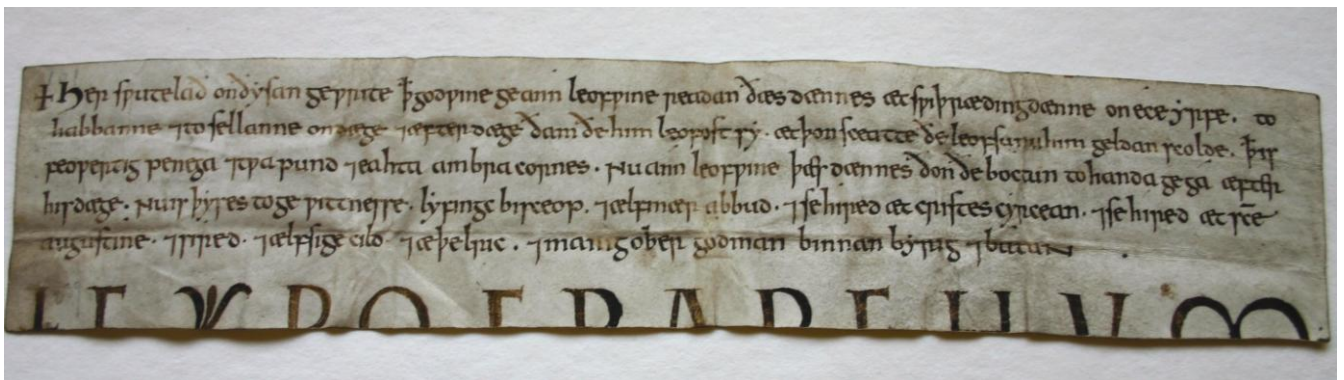 + Her sƿutelað on ðysan geƿrite ꝥ godƿine geann leofƿine readan ðæs dænnes æt sƿiþrædingdænne on ece yrfe. to
habbanne ⁊ to sellanne on dæge ⁊ æfter dæge ðam ðe him leofost sy. æt þon sceatte ðe leofsunu him geldan scolde. ꝥ is
feoƿertig penega ⁊ tƿa pund ⁊ eahta ambra cornes. Nu ann leofƿine þæs dænnes ðon ðe boctun to handa gega æfter
his dæge. Nu is þyses to geƿittnesse. lyfingc bisceop. ⁊ ælfmær abbud. ⁊ se hired æt cristes cyrcean. ⁊ se hired æt sc̄e
augustine. ⁊ sired. ⁊ ælfsige cild. ⁊ æþelric. ⁊ manig oþer god man binnan byrig ⁊ butan
+ CYROGRAPHUM